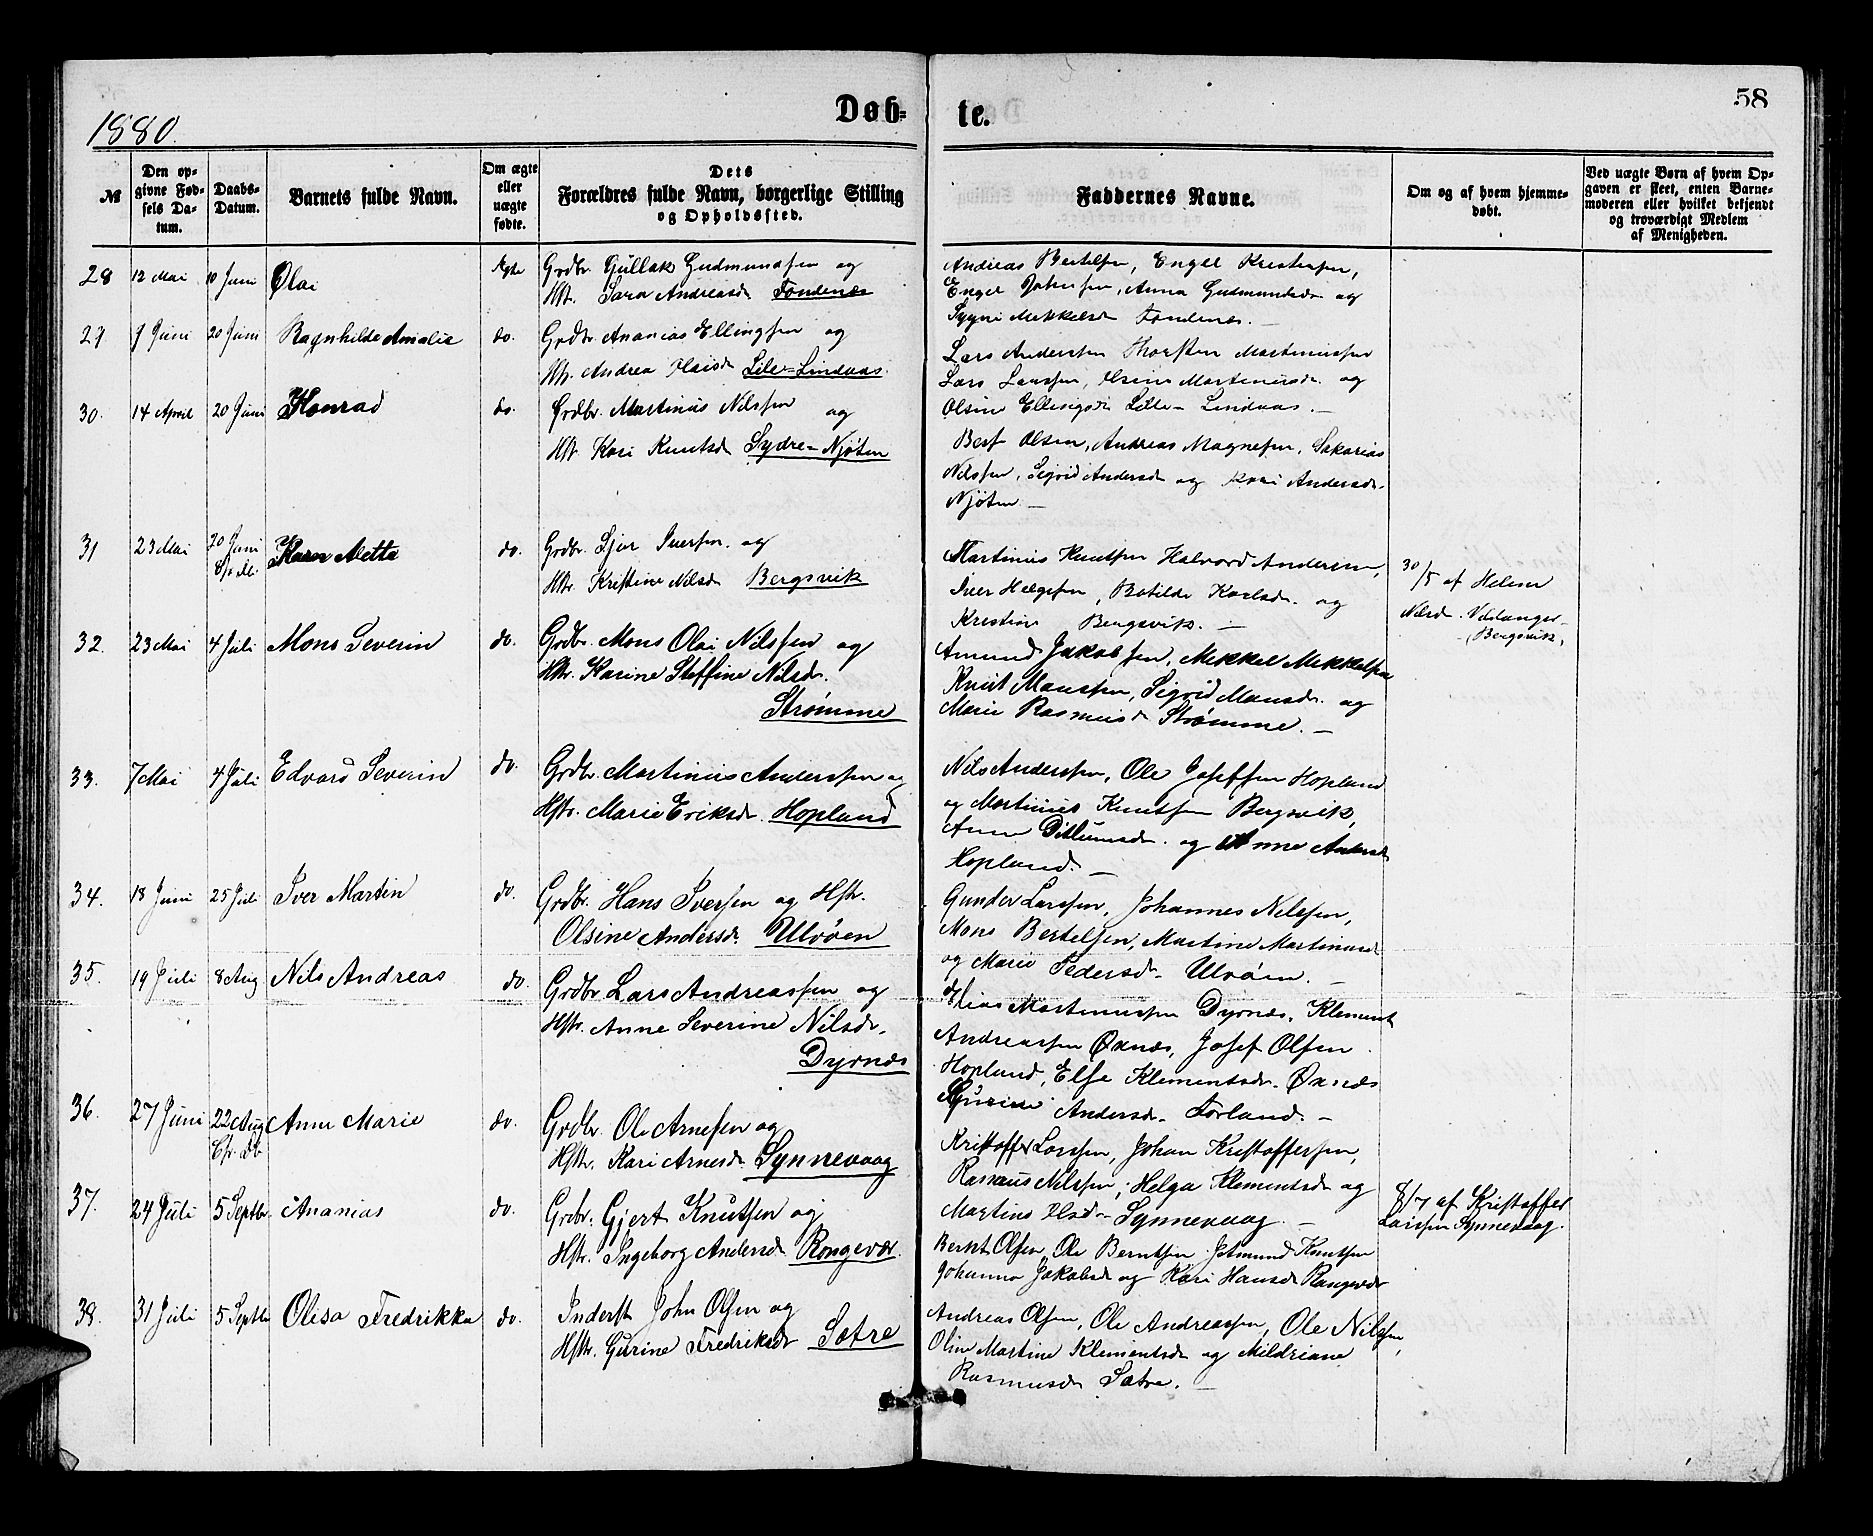 1880.
Døb-
te.
58
№
Den op-
givne Fød-
sels Da-
tum.
Daabs-
Datum.
Barnets fulde Navn.
Om ægte
eller
uægte
fødte.
Dets
Forældres fulde Navn, borgerlige Stilling
og Opholdssted.
Faddernes Navne.
Om og af hvem hjemme-
døbt.
Ved uægte Børn af hvem Op-
gaven er skeet, enten Barne-
moderen eller hvilket bekjendt
og troværdigt Medlem
af Menigheden.
28 12 Mai 10 Juni Olai Ægte Grdbr. Gullak Gudmundsen og
Hst. Sara Andreasdr Fondenes
Andreas Bertelsen, Engel Kristensen,
Engel Johnsen, Anna Gudmundsdr og
Sygni Mekkelsdr Fondenes. —
29 9 Juni 20 Juni Ragnhilda Amalia do. Grdbr Ananias Ellingsen og
Hst. Andrea Olaisdr Lille-Lindaas.
Lars Anderssen Thorsten Martinussen
Lars Larssen, Olsine Martinusdr. og
Olsine Ellingsdr Lille-Lindaas. —
30. 14 April 20 Juni Konrad do. Grdbr. Martinus Nilssen og
Hst Kari Knutsdr Sydre-Njøten
Bert Olsen, Andreas Magnesen, Sakarias
Nilssen, Sigrid Andersdr og Kari Andersdr.
Njøten —
31 23 Mai 20 Juni Karen Metta do. Grdbr. Sjur Iversen. og
Hstr. Kristine Nilsdr Bergsvik
Martinus Knutsen Halvord Andersen,
Iver Helgesen, Botilda Karlsdr. og
Kristine Bergsvik. —
30/5 af Helene
Nilsd. Veldanger
(Bergsvik,
32. 23 Mai 4 Juli Mons Severin do. Grdbr. Mons Olai Nilssen og
Hstr. Karine Steffine Nilsdr.
Strømme
Amund Jakobsen, Mekkel Mekkelsen
Knut Monssen, Sigrid Monsdr. og
Marie Rasmusdr Strømme. —
33. 7 Mai 4 Juli Edvard Severin do. Grdbr. Martinus Anderssen og
Hstr. Marie Eriksdr. Hopland
Nils Anderssen, Ole Josefsen Hopland
og Martinus Knutsen Bergsvik,
Anne Ditlevsdr. og Anne Andersdr
Hopland. —
34. 18 Juni 25 Juli Iver Martin do. Grdbr. Hans Iversen og Hstr.
Olsine Andersdr. Ulvøen
Gunder Larssen, Johannes Nilssen,
Mons Bertelsen, Martine Martinusd
og Marie Pedersdr. Ulvøen. —
35. 19 Juli 8 Aug Nils Andreas do. Grdbr Lars Andreassen og
Hstr. Anne Severine Nilsdr.
Dyrnæs
Elias Martinussen Dyrnæs, Klement
Andreassen Oxnæs, Josef Olsen
Hopland, Else Klementsdr. Oxnæs
Gurine Andersdr. Forland. —
36. 27 Juni 22 Aug Anne Marie do. Grdbr. Ole Arnesen og
Hstr. Kari Arnesdr. Synnevaag
Kristoffer Larssen, Johan Kristoffersen,
Rasmus Nilssen, Helga Klementsdr og
Martine Olsdr Synnevaag. —
8/7 af Kristoffer
Larssen Synnevaag.
37. 24 Juli 5 Septbr. Ananias do. Grdbr. Gjert Knutsen og
Hstr. Ingeborg Andersdr Rongevær.
Bernt Olsen, Ole Berntsen, Jetmund Knutsen
Johanna Jakobsdr og Kari Hansdr Rongevær
38. 31 Juli 5 Septbr Olisa Fredrikka do. Inderst John Olsen og
Hstr. Gurine Fredriksdr Sætre
Andreas Olsen, Ole Andreassen, Ole Nilssen,
Oline Martine Klementsdr og Mildriane
Rasmusdr Sætre. —